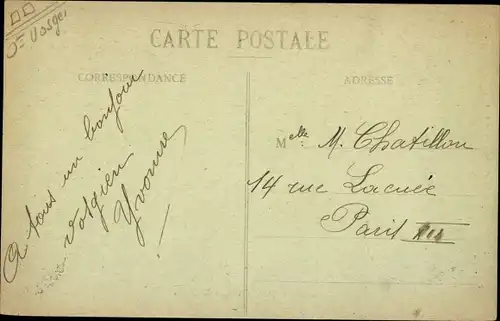 Vosges
CARTE POSTALE
CORRESPONDANCE
ADRESSE
A tous un bonjour
vosgien
Yvonne
Melle M. Chatillon
14 rue Lacuée
Paris XII